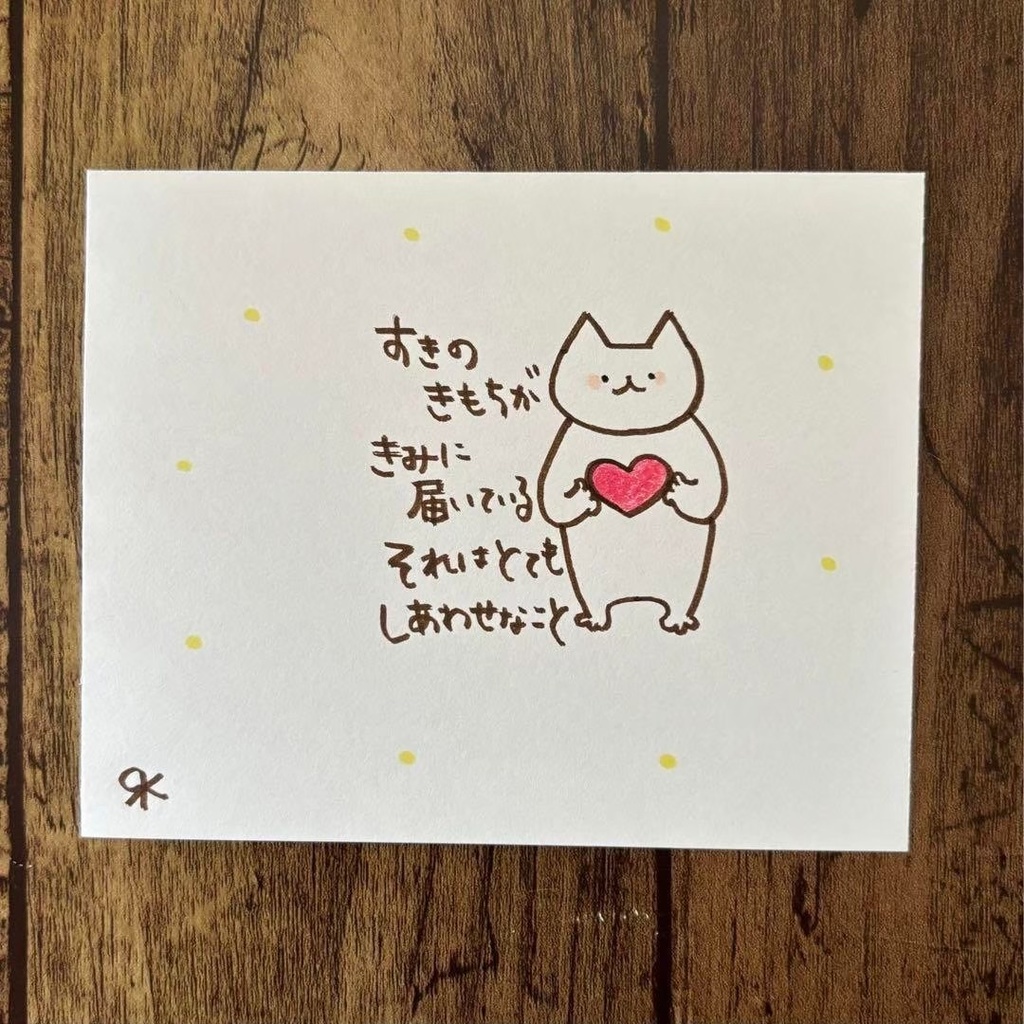 すきの
きもちが
きみに
届いている
それはとても
しあわせなこと